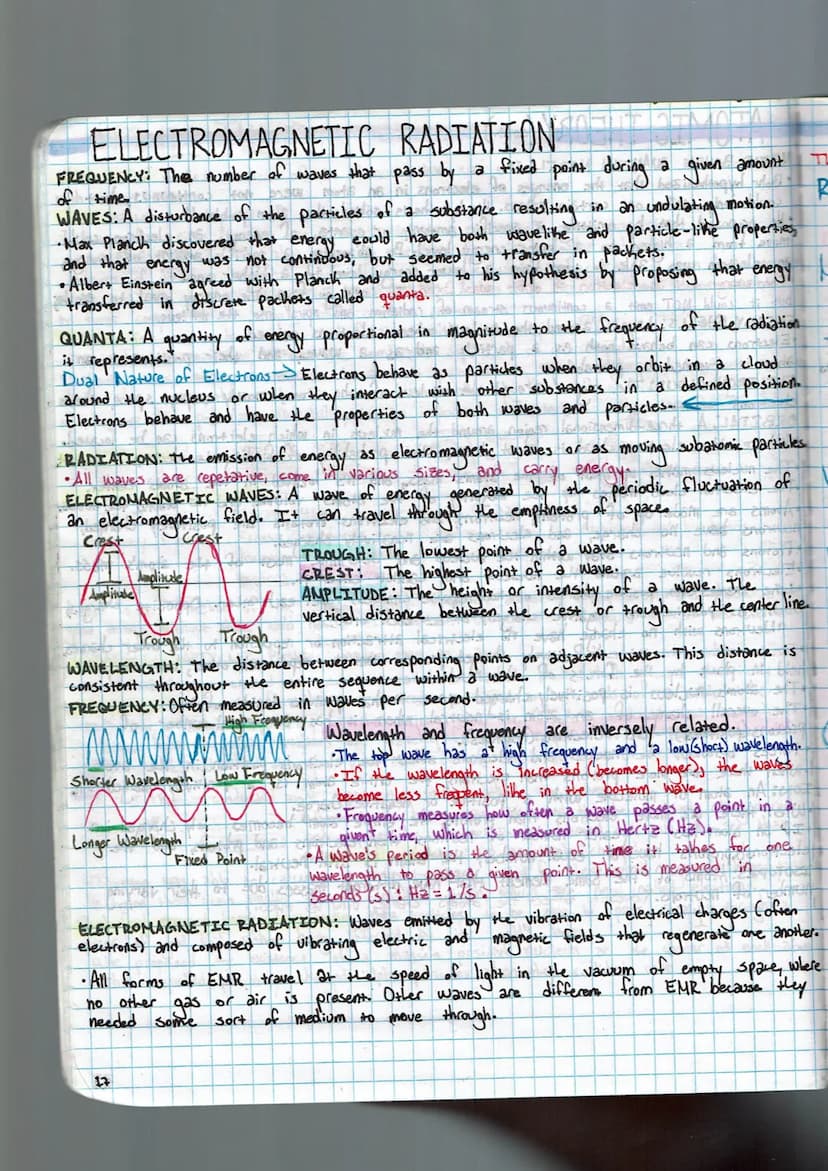 ELECTROMAGNETIC RADIATION
FREQUENCY: The number of waves that pass by a fixed point during a given amount
of time.
WAVES: A disturbance of the particles of a substance resulting in an undulating motion.
•Max Planck discovered that energy could have both wavelike and particle-like properties,
and that energy was not continuous, but seemed to transfer in packets.
•Albert Einstein agreed with Planck and added to his hypothesis by proposing that energy
transferred in discrete packets called quanta.
QUANTA: A quantity of energy proportional in magnitude to the frequency of the radiation
it represents.
Dual Nature of Electrons → Electrons behave as particles when they orbit in a cloud
around the nucleus or when they interact with other substances in a defined position.
Electrons behave and have the properties of both waves and particles.
RADIATION: The emission of energy as electromagnetic waves or as moving subatomic particles
•All waves are repetative, come in various sizes, and carry energy.
ELECTROMAGNETIC WAVES: A wave of energy generated by the periodic fluctuation of
an electromagnetic field. It can travel through the emptiness of space.
Crest Crest
Amplitude
Amplitude
Trough Trough
TROUGH: The lowest point of a wave.
CREST: The highest point of a wave.
AMPLITUDE: The height or intensity of a wave. The
vertical distance between the crest or trough and the center line.
WAVELENGTH: The distance between corresponding points on adjacent waves. This distance is
consistent throughout the entire sequence within a wave.
FREQUENCY: Often measured in waves per second.
High Frequency
Shorter Wavelength Low Frequency
Longer Wavelength
Fixed Point
Wavelength and frequency are inversely related.
•The top wave has a high frequency and a low(short) wavelength.
•If the wavelength is increased (becomes longer), the waves
become less frequent, like in the bottom wave.
•Frequency measures how often a wave passes a point in a
given time, which is measured in Hertz (Hz).
•A wave's period is the amount of time it takes for one
wavelength to pass a given point. This is measured in
seconds (s): Hz = 1/s.
ELECTROMAGNETIC RADIATION: Waves emitted by the vibration of electrical charges (often
electrons) and composed of vibrating electric and magnetic fields that regenerate one another.
•All forms of EMR travel at the speed of light in the vacuum of empty space, where
no other gas or air is present. Other waves are different from EMR because they
needed some sort of medium to move through.
17